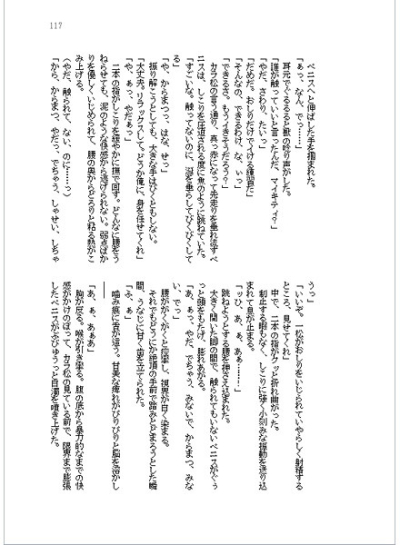 117
ペニスへと伸ばした手を掴まれた。
「ぁっ、なん、でっ……」
耳元でぐるるると獣の唸り声がした。
「誰が触っていいと言ったんだ、マイキティ？」
「やだ、さわり、たいっ」
「だめだ。おしりだけでイける練習だ」
「そんなの、できるわけ、な、ぃっ」
「できるさ。もうイきそうだろう？」
カラ松の言う通り、真っ赤になって先走りを垂れ流すペ
ニスは、しこりを圧迫される度に魚のように跳ねていた。
「すごいな。触ってないのに、涎を垂らしてびくびくして
る」
「や、からまつっ、はな、せっ」
振り解こうとしても、大きな手はびくともしない。
「大丈夫。リラックスして。どうか俺に、身を任せてくれ」
「や、ぁっ、やだぁっ」
二本の指がしこりを緩やかに撫で回す。どんなに腰をう
ねらせても、泥のような快感から逃げられない。弱点ばか
りを優しくいじめられて、腰の奥からどろりと粘る熱がこ
み上げる。
（やだ、触られて、ない、のに……っ）
「から、からまつ、やだっ、でちゃう、しゃせい、しちゃ
うっ」
「いいぞ。一松がおしりをいじられていやらしく射精する
ところ、見せてくれ」
中で、二本の指がクッと折れ曲がった。
制止する暇もなく、しこりに強く小刻みな振動を送り込
まれて息が止まる。
「ッひ、あ、ぁ、あぁ………っ」
跳ねようとする腰を押さえ込まれた。
大きく開いた脚の間で、触られてもいないペニスがぐぅ
っと頭をもたげ、膨れあがる。
「あ、あっ、やだ、でちゃう、みないで、からまつ、みな
い、でっ」
腰ががくがくと痙攣し、視界が白く染まる。
それでもどうにか絶頂の手前で踏みとどまろうとした瞬
間、うなじに甘く歯を立てられた。
「ふ、ぁ」
噛み痕に舌が這う。甘美な痺れがびりびりと脳を溶かし
――
「あ、ぁ、あぁあ」
胸が反る。喉が引き攣る。腹の底から暴力的なまでの快
感がかけのぼって、カラ松の見ている前で、限界まで膨張
したペニスがびゅうっと白濁を噴き上げた。